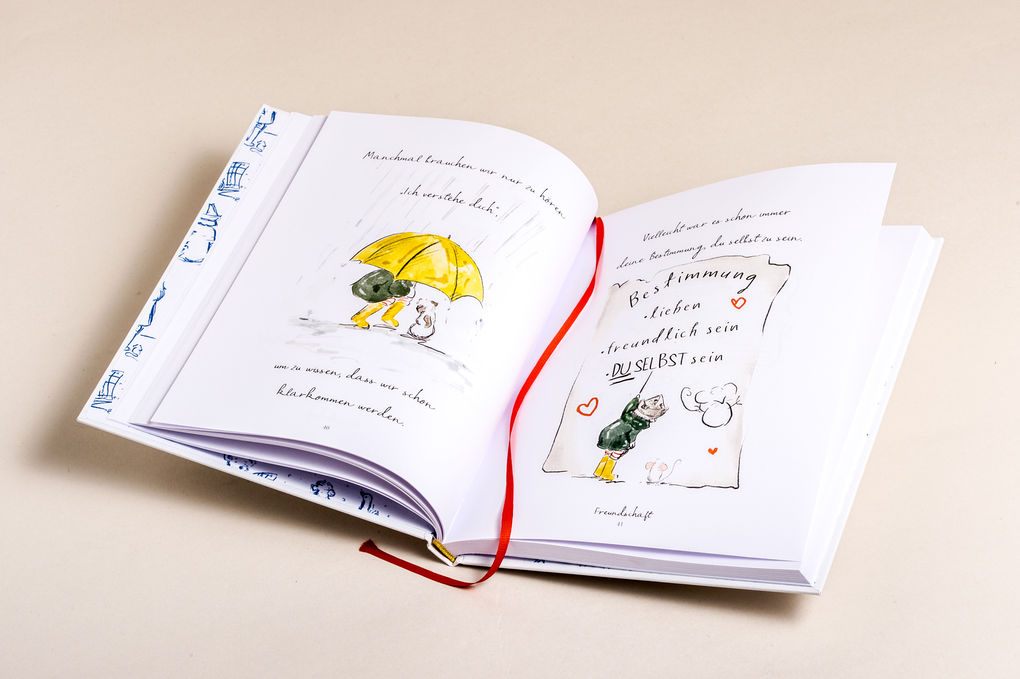 Manchmal brauchen wir nur zu hören
„Ich verstehe dich“,
um zu wissen, dass wir schon
klarkommen werden.
40
Vielleicht war es schon immer
deine Bestimmung, du selbst zu sein.
Bestimmung
•lieben
•freundlich sein
•DU SELBST sein
Freundschaft
41